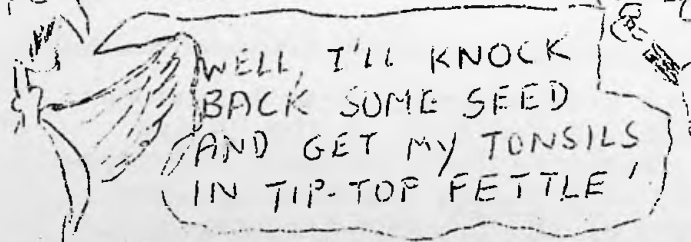 WELL, I'LL KNOCK
BACK SOME SEED
AND GET MY TONSILS
IN TIP-TOP FETTLE'